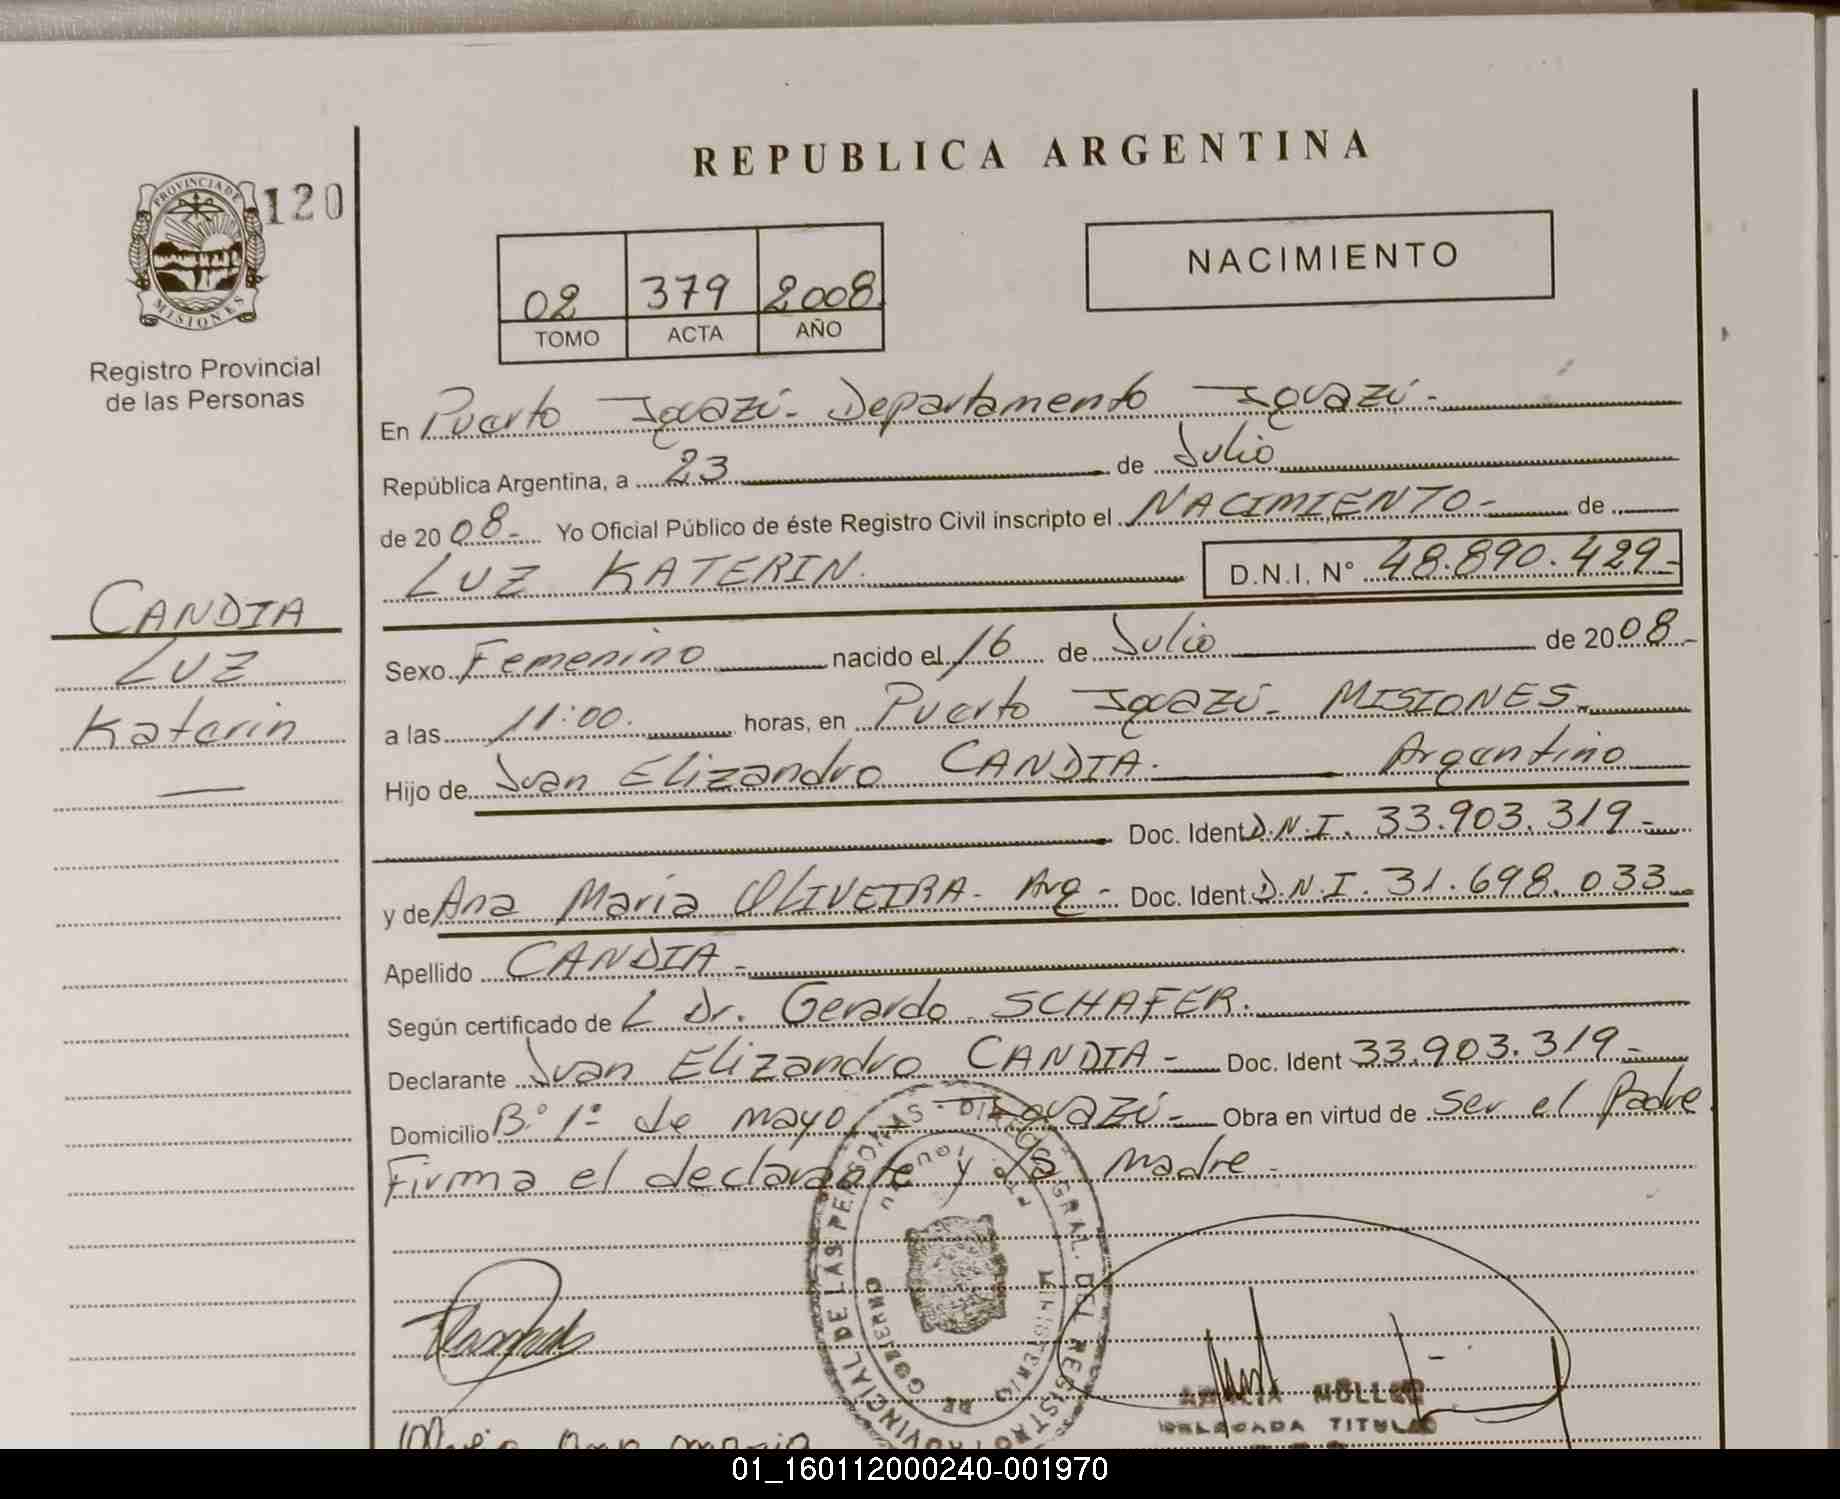 REPUBLICA ARGENTINA
PROVINCIA DE
MISIONES
120
Registro Provincial
de las Personas
02 379 2008
TOMO ACTA AÑO
NACIMIENTO
En Puerto Iguazú- Departamento Iguazú-
República Argentina, a 23 de Julio
de 2008- Yo Oficial Público de éste Registro Civil inscripto el NACIMIENTO- de
LUZ KATERIN. D.N.I. N° 48.890.429-
CANDIA
LUZ
Katerin
Sexo Femenino nacido el 16 de Julio de 2008-
a las 11:00. horas, en Puerto Iguazú- MISIONES.
Hijo de Juan Elizandro CANDIA. Argentino
Doc. Ident D.N.I. 33.903.319-
y de Ana Maria OLIVEIRA- Arg- Doc. Ident. D.N.I. 31.698.033-
Apellido CANDIA-
Según certificado de L Dr. Gerardo SCHAFER.
Declarante Juan Elizandro CANDIA- Doc. Ident 33.903.319-
Domicilio B° 1° de mayo, Iguazú- Obra en virtud de ser el Padre.
Firma el declarante y la madre-
GRAL. DEL REGISTRO PROVINCIAL DE LAS PERSONAS
MINISTERIO DE GOBIERNO
MÜLLER
DELEGADA TITULAR
ana maria
01_160112000240-001970